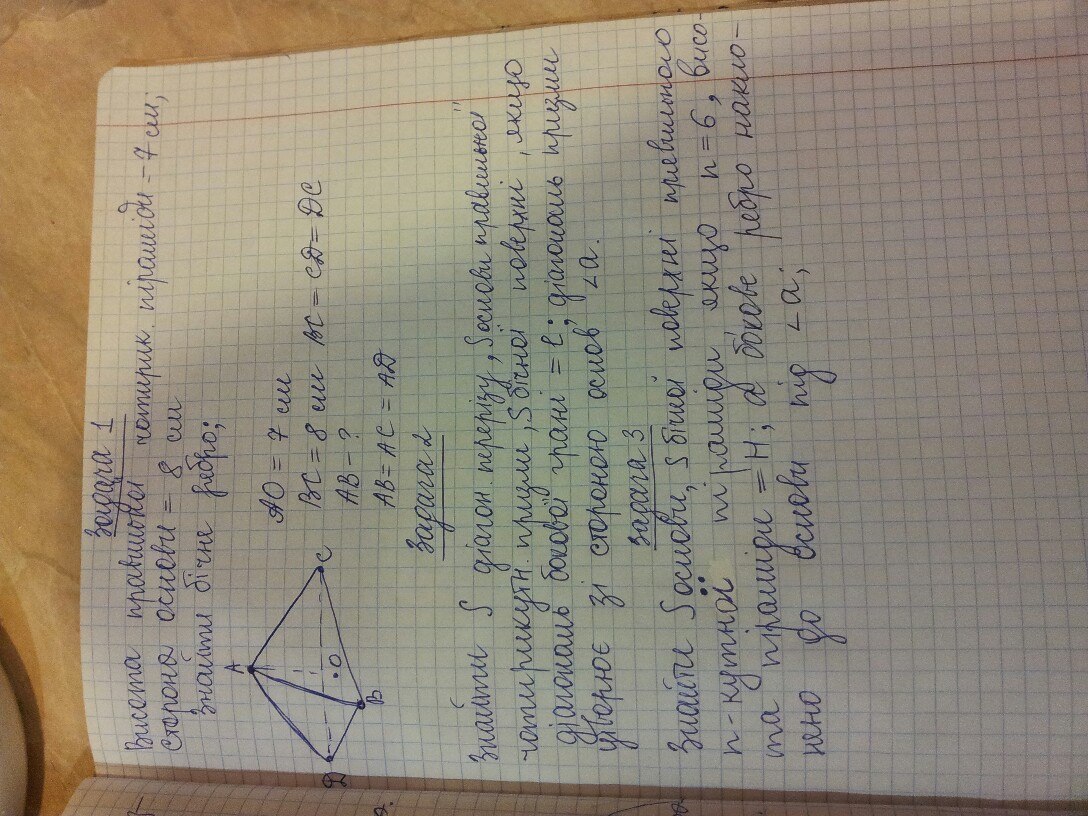 Задача 1
Висота правильної чотирик. піраміди = 7 см;
сторона основи = 8 см
Знайти бічне ребро;
A
D
B
C
O
AO = 7 см
BC = 8 см BC = CD = DC
AB = ?
AB = AC = AD
Задача 2
Знайти S діагон. перерізу, S основи правильної
чотирикутн. призми, S бічної поверхні, якщо
діагональ бокової грані = l; діагональ призми
утворює зі стороною основ ∠a.
Задача 3
Знайти S основи, S бічної поверхні правильного
n-кутної піраміди якщо n = 6, висо-
та піраміди = H; а бокове ребро нахило-
нено до основи під ∠a;